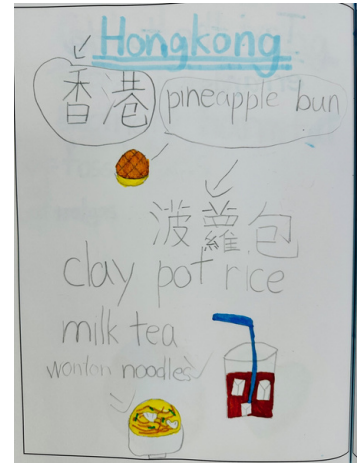 Hongkong
香港 pineapple bun
波蘿包
clay pot rice
milk tea
wonton noodles